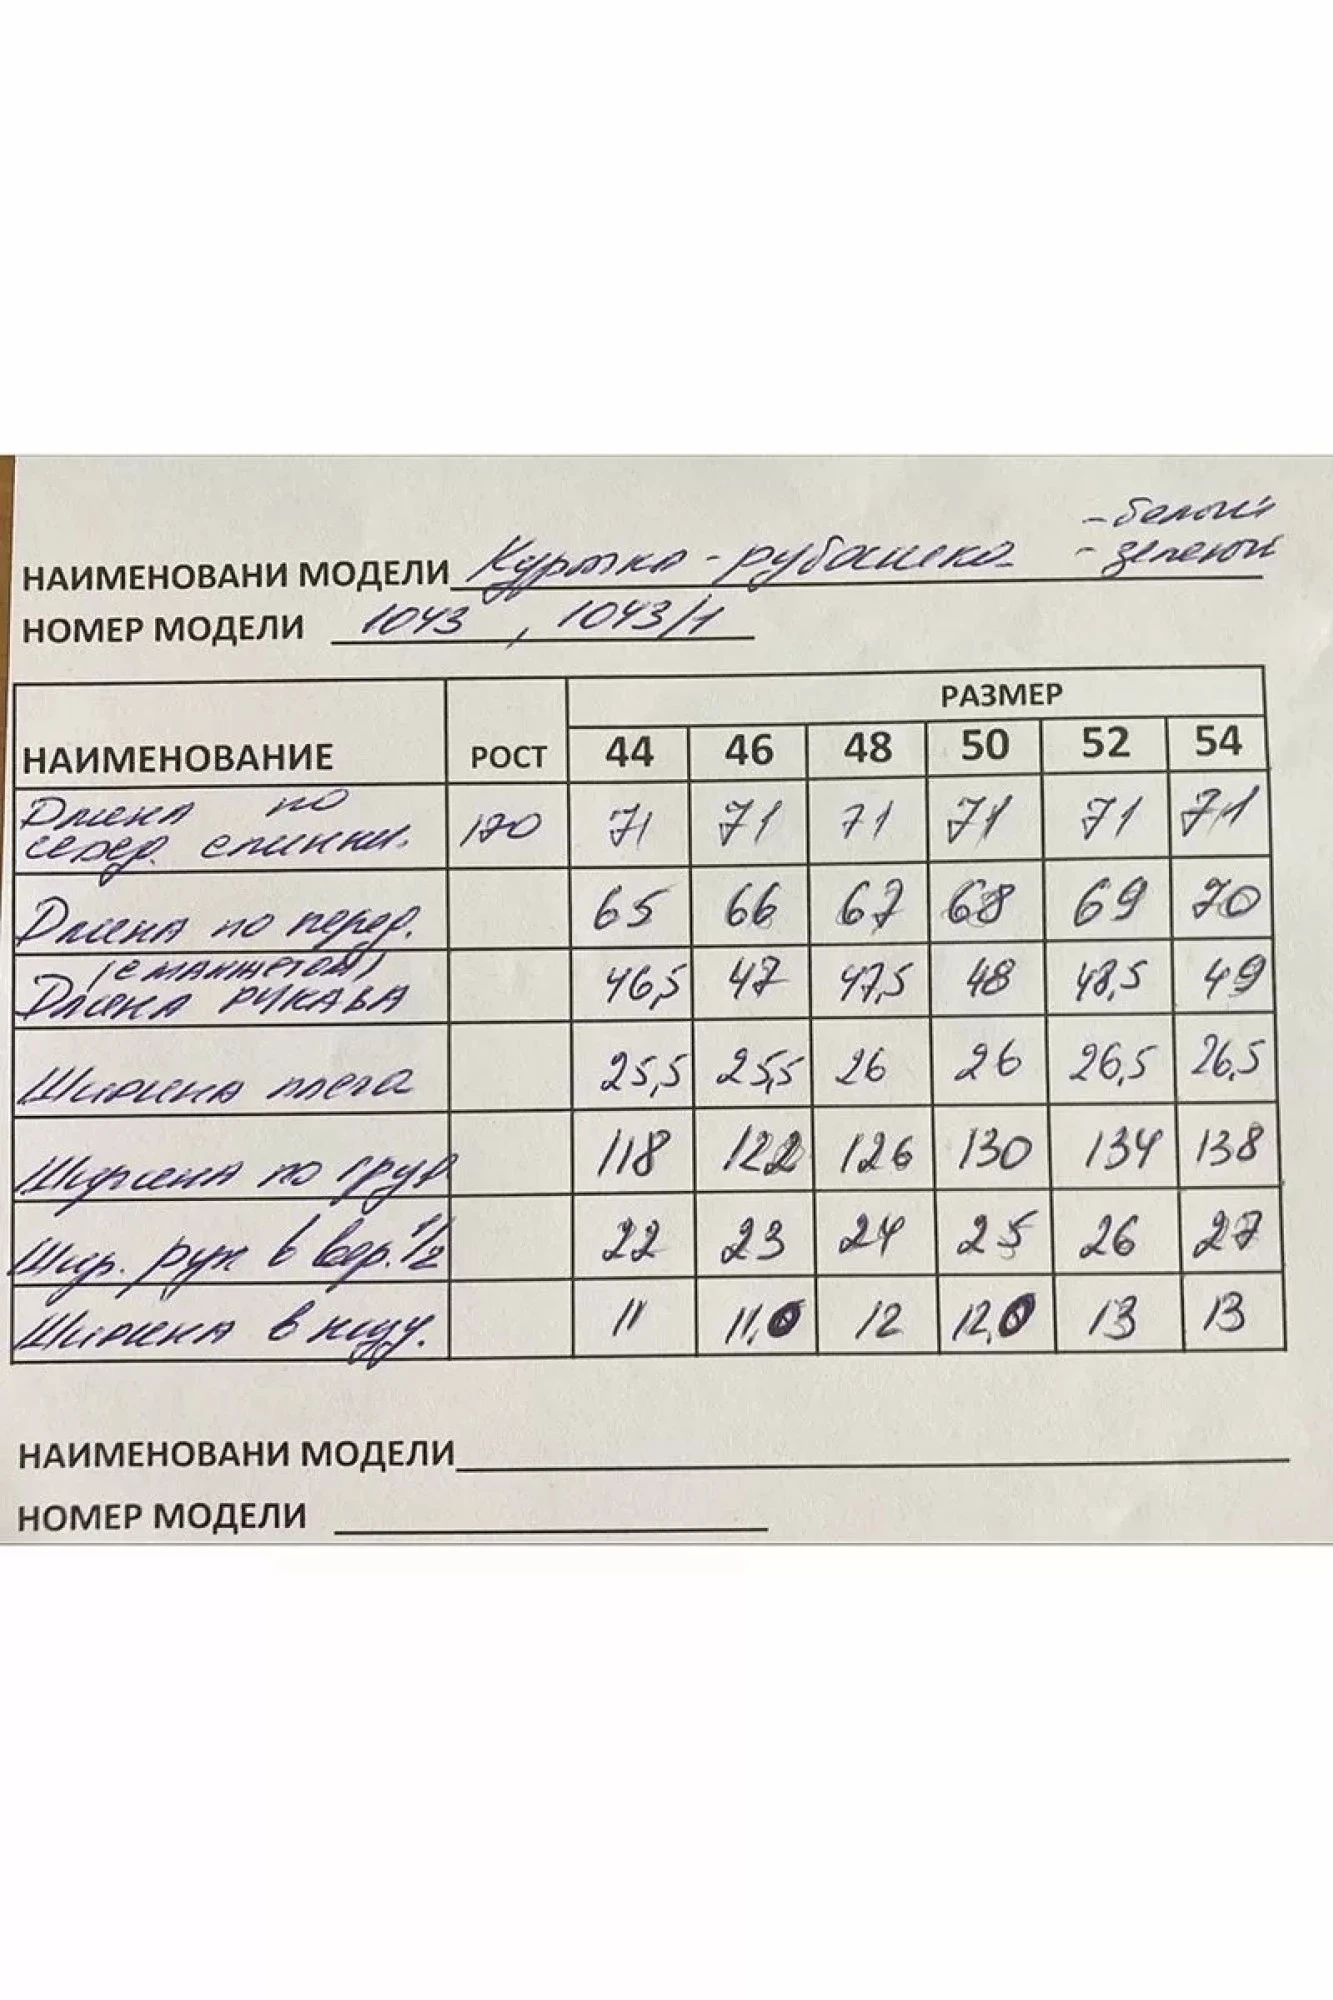 -белый
НАИМЕНОВАНИ МОДЕЛИ Куртка-рубашка -зеленый
НОМЕР МОДЕЛИ 1043, 1043/1
РАЗМЕР
НАИМЕНОВАНИЕ РОСТ 44 46 48 50 52 54
Длина по
серед. спинки. 170 71 71 71 71 71 71
Длина по перед. 65 66 67 68 69 70
(с манжетой)
Длина рукава 46,5 47 47,5 48 48,5 49
Ширина плеча 25,5 25,5 26 26 26,5 26,5
Ширина по груд 118 122 126 130 134 138
Шир. рук в вер. 1/2 22 23 24 25 26 27
Ширина внизу. 11 11,0 12 12,0 13 13
НАИМЕНОВАНИ МОДЕЛИ
НОМЕР МОДЕЛИ